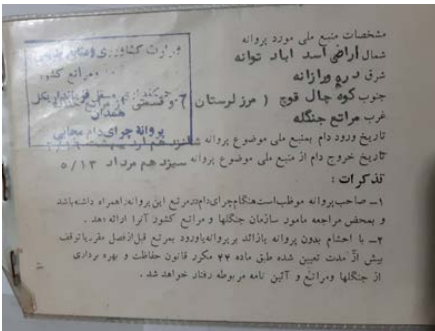 مشخصات منبع ملی مورد پروانه
شمال اراضی اسد اباد توانه
شرق دره ورازانه
جنوب کوه چال قوچ ( مرز لرستان ) و قسمتی از مراتع
غرب مراتع جنگله
تاریخ ورود دام بمنبع ملی موضوع پروانه
تاریخ خروج دام از منبع ملی موضوع پروانه سیزدهم مرداد ۵/۱۳
تذکرات :
۱ـ صاحب پروانه موظف است هنگام چرای دام در مرتع این پروانه را همراه داشته باشد
و بمحض مراجعه مامور سازمان جنگلها و مراتع کشور آنرا ارائه دهد .
۲ـ با احشام بدون پروانه یا زائد بر پروانه یا ورود بمرتع قبل از فصل مقرر یا توقف
بیش از مدت تعیین شده طبق ماده ۴۴ مکرر قانون حفاظت و بهره برداری
از جنگلها و مراتع و آئین نامه مربوطه رفتار خواهد شد .
وزارت کشاورزی و منابع طبیعی
همدان
پروانه چرای دام مجانی